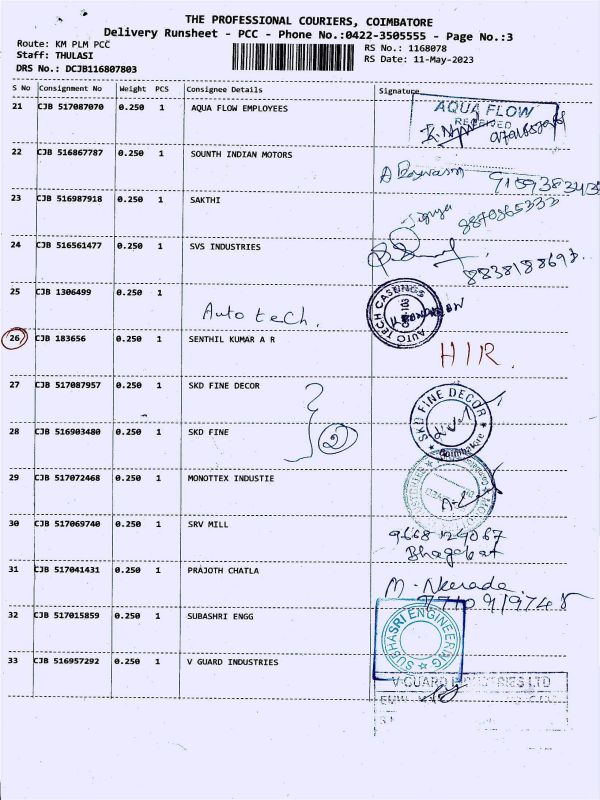 THE PROFESSIONAL COURIERS, COIMBATORE
Delivery Runsheet - PCC - Phone No.:0422-3505555 - Page No.:3
Route: KM PLM PCC RS No.: 1168078
Staff: THULASI RS Date: 11-May-2023
DRS No.: DCJB116807803
S No Consignment No Weight PCS Consignee Details Signature
21 CJB 517087070 0.250 1 AQUA FLOW EMPLOYEES
AQUA FLOW
RECEIVED
22 CJB 516867787 0.250 1 SOUNTH INDIAN MOTORS
23 CJB 516987918 0.250 1 SAKTHI
8870865333
24 CJB 516561477 0.250 1 SVS INDUSTRIES
25 CJB 1306499 0.250 1 Auto tech.
AUTO TECH CASINGS
26 CJB 183656 0.250 1 SENTHIL KUMAR A R HIR.
27 CJB 517087957 0.250 1 SKD FINE DECOR
SKD FINE DECOR
Coimbatore
28 CJB 516903480 0.250 1 SKD FINE
2
29 CJB 517072468 0.250 1 MONOTTEX INDUSTIE
30 CJB 517069740 0.250 1 SRV MILL
Bhagabat
31 CJB 517041431 0.250 1 PRAJOTH CHATLA
32 CJB 517015859 0.250 1 SUBASHRI ENGG
SUBHASRI ENGINEERING
33 CJB 516957292 0.250 1 V GUARD INDUSTRIES
V-GUARD INDUSTRIES LTD